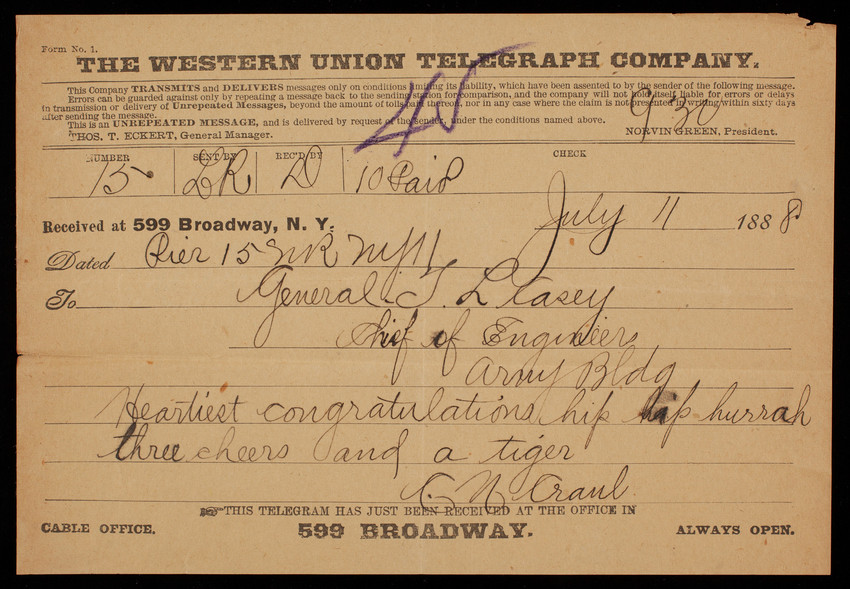 Form No. 1.
THE WESTERN UNION TELEGRAPH COMPANY.
This Company TRANSMITS and DELIVERS messages only on conditions limiting its liability, which have been assented to by the sender of the following message.
Errors can be guarded against only by repeating a message back to the sending station for comparison, and the company will not hold itself liable for errors or delays
in transmission or delivery of Unrepeated Messages, beyond the amount of tolls paid thereon, nor in any case where the claim is not presented in writing within sixty days
after sending the message.
This is an UNREPEATED MESSAGE, and is delivered by request of the sender, under the conditions named above.
THOS. T. ECKERT, General Manager. NORVIN GREEN, President.
930
NUMBER SENT BY REC'D BY CHECK
15 D 10 Paid
Received at 599 Broadway, N. Y. July 11 1888
Dated Pier 15 NR NY 11
To General T L Casey
Chief of Engineers
Army Bldg
Heartiest congratulations hip hip hurrah
three cheers and a tiger
THIS TELEGRAM HAS JUST BEEN RECEIVED AT THE OFFICE IN
CABLE OFFICE. 599 BROADWAY. ALWAYS OPEN.